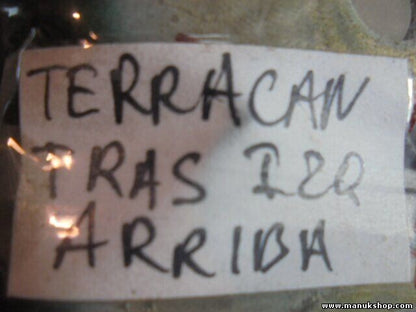 TERRACAN
TRAS IZQ
ARRIBA
www.manukshop.com